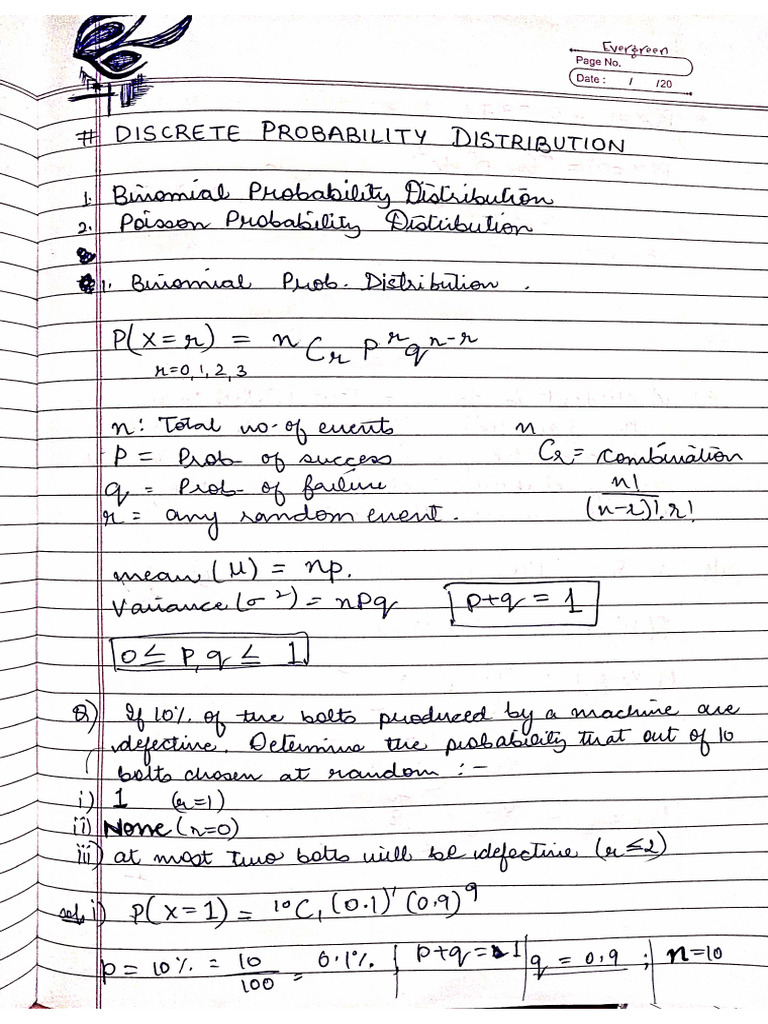 Evergreen
Page No.
Date : / /20
# DISCRETE PROBABILITY DISTRIBUTION
1. Binomial Probability Distribution
2. Poisson Probability Distribution
1. Binomial Prob. Distribution .
P(X=r) = n Cr P^r q^n-r
r=0,1,2,3
n: Total no. of events
P = Prob. of success
q = Prob. of failure
r = any random event.
n
Cr = combination
n!
(n-r)!.r!
mean (μ) = np.
Variance (σ²) = npq
p+q = 1
0 ≤ p, q ≤ 1
Q) If 10% of the bolts produced by a machine are
defective. Determine the probability that out of 10
bolts chosen at random :-
i) 1 (r=1)
ii) None (r=0)
iii) at most two bolts will be defective (r≤2)
sol. i) P(X=1) = ¹⁰C₁ (0.1)¹ (0.9)⁹
p = 10% = 10/100 = 0.1%. | p+q = 1 | q = 0.9 ; | n=10